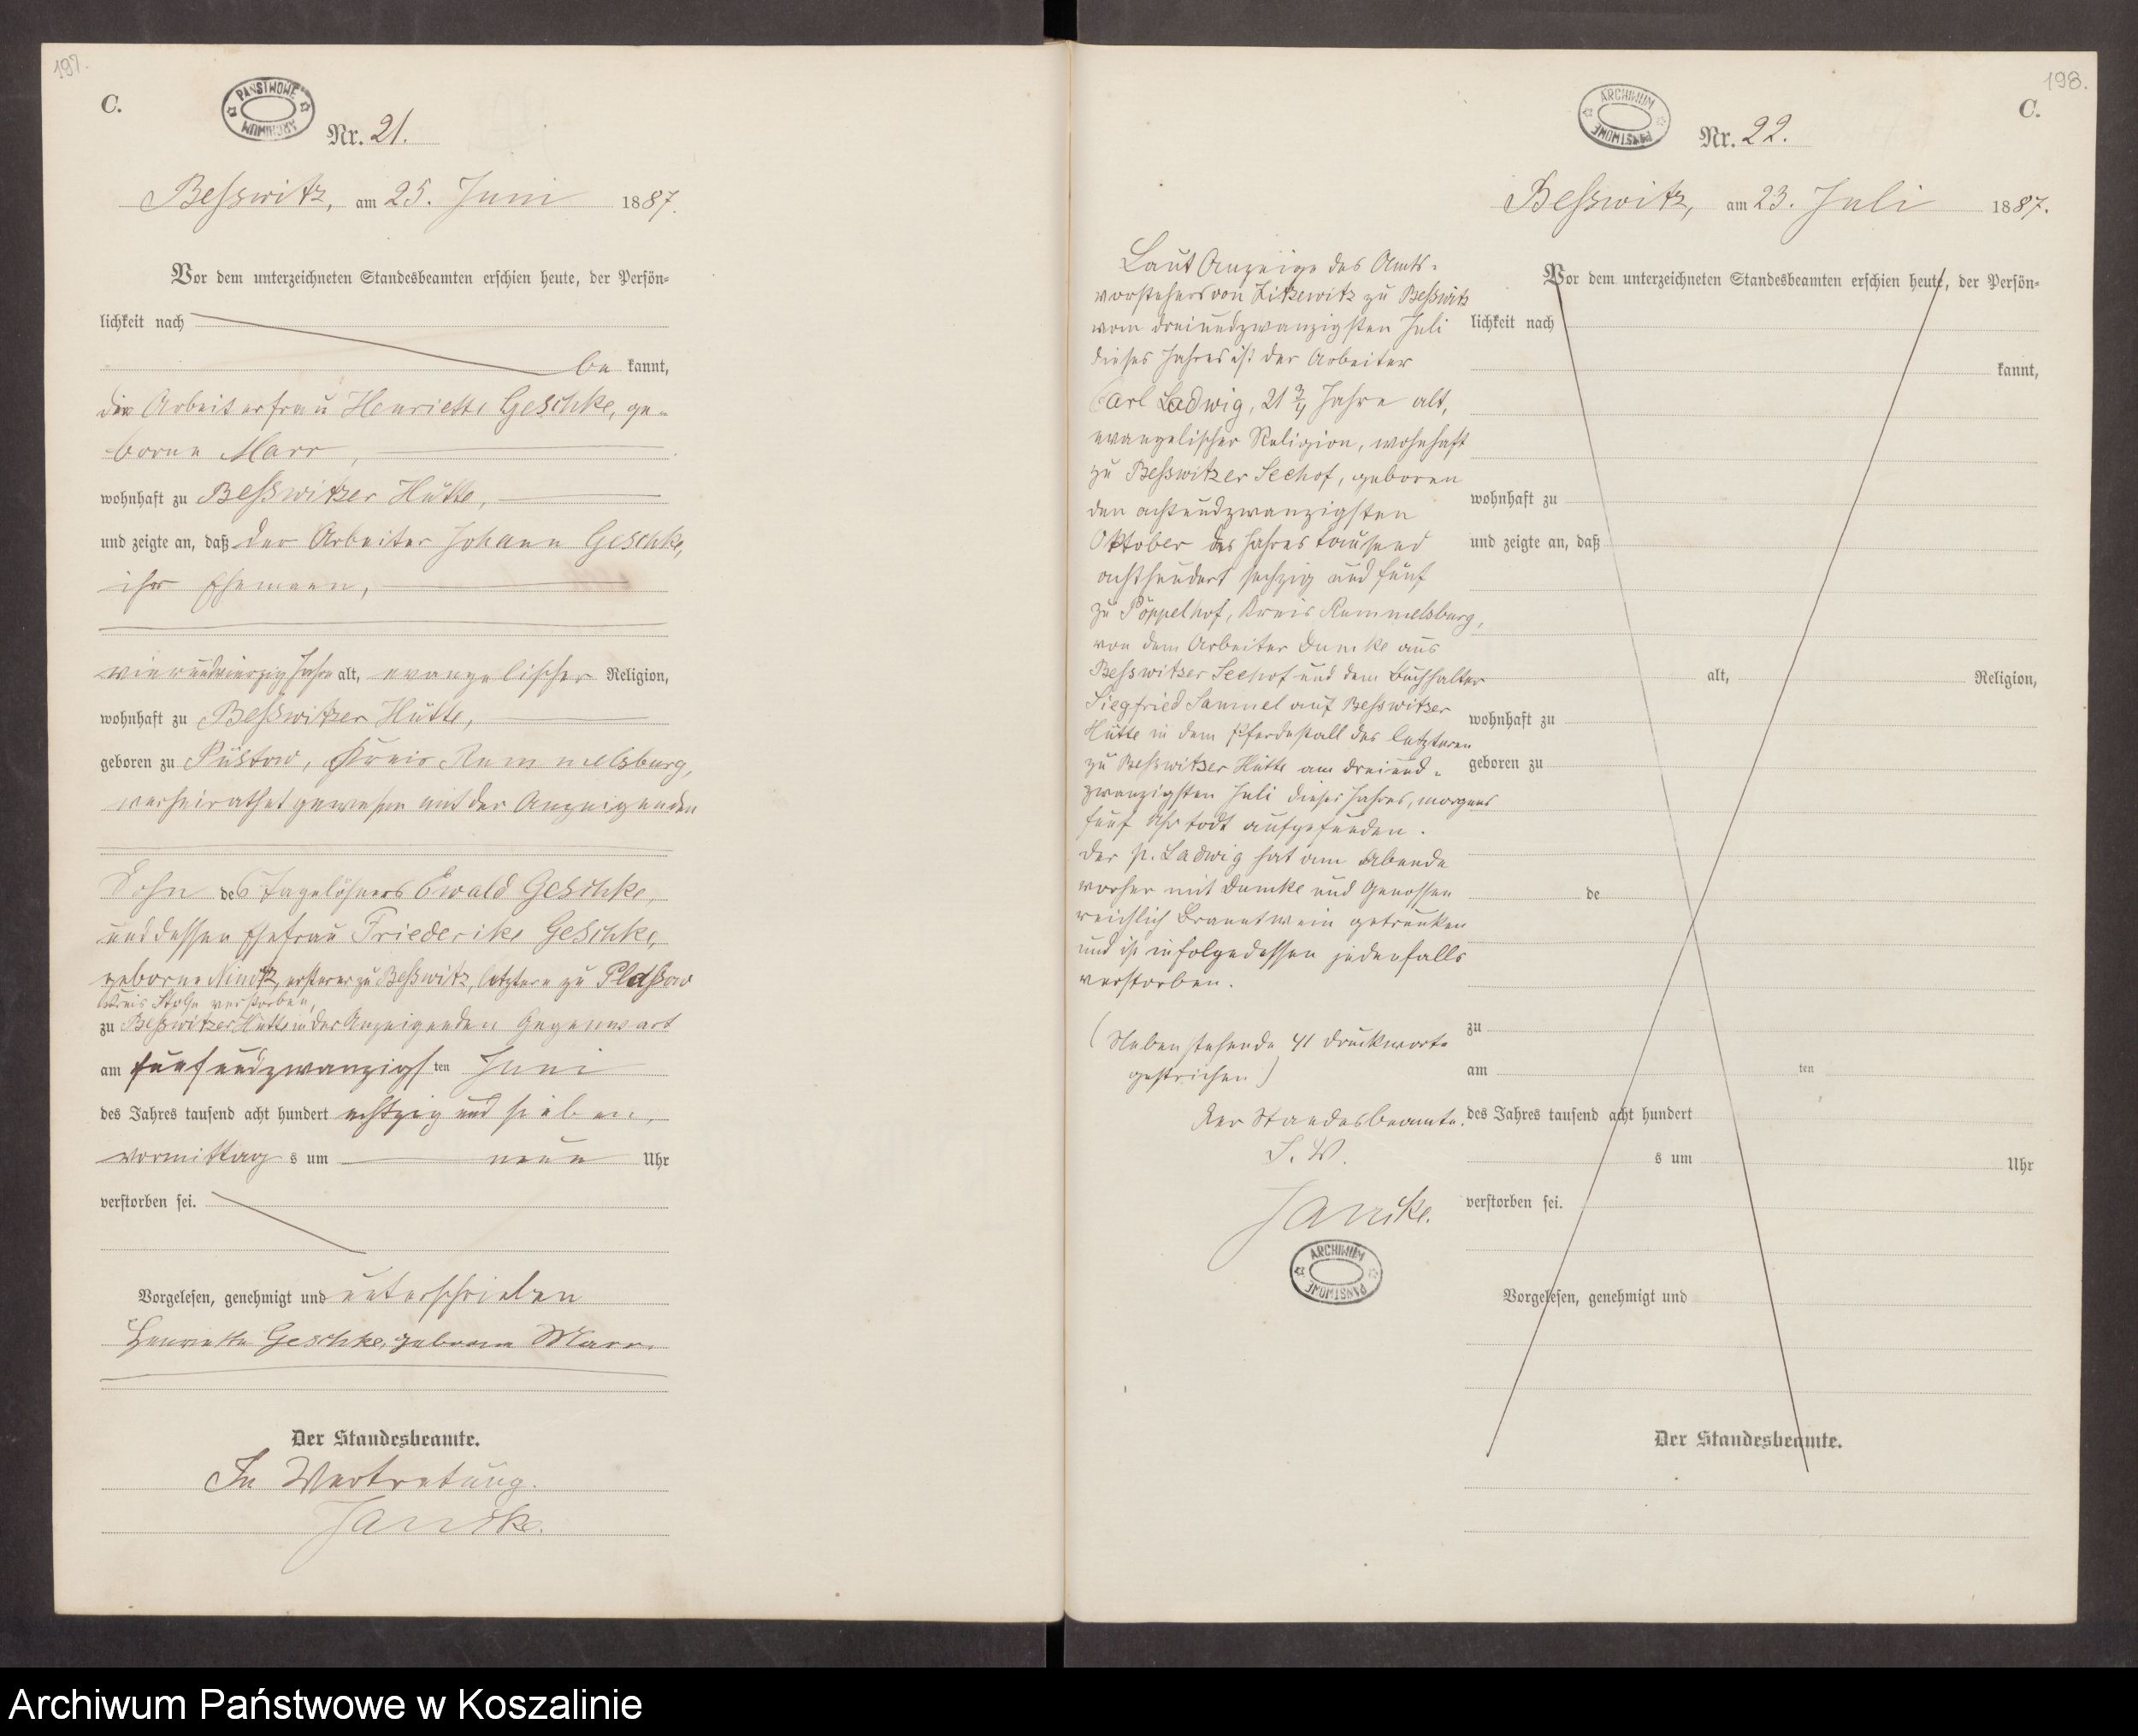 197.
C.
PAŃSTWOWE ARCHIWUM
Nr. 21.
Beßwitz, am 25. Juni 1887.
Vor dem unterzeichneten Standesbeamten erschien heute, der Persön-
lichkeit nach
be kannt,
die Arbeiterfrau Henriette Geschke, ge-
borne Marr,
wohnhaft zu Beßwitzer Hütte,
und zeigte an, daß der Arbeiter Johann Geschke,
ihr Ehemann,
vierundvierzig Jahre alt, evangelischer Religion,
wohnhaft zu Beßwitzer Hütte,
geboren zu Püstow, Kreis Rummelsburg,
verheirathet gewesen mit der Anzeigenden
Sohn des Tagelöhners Ewald Geschke,
und dessen Ehefrau Friederike Geschke,
geborne, ersterer zu Beßwitz, letztere zu
Kreis Stolp verstorben,
zu Beßwitzer Hütte in der Anzeigenden Gegenwart
am fünfundzwanzigsten Juni
des Jahres tausend acht hundert achtzig und sieben,
vormittags um neun Uhr
verstorben sei.
Vorgelesen, genehmigt und unterschrieben
Henriette Geschke, geborne Marr.
Der Standesbeamte.
In Vertretung.
Janske.
198.
C.
ARCHIWUM PAŃSTWOWE
Nr. 22.
Beßwitz, am 23. Juli 1887.
Laut Anzeige des Amts-
vorstehers von Zitzewitz zu Beßwitz
vom dreiundzwanzigsten Juli
dieses Jahres ist der Arbeiter
Carl Ladwig, 21 3/4 Jahre alt,
evangelischer Religion, wohnhaft
zu Beßwitzer Seehof, geboren
den achtundzwanzigsten
Oktober des Jahres tausend
achthundert sechzig und fünf
zu Pöppelhof, Kreis Rummelsburg,
von dem Arbeiter Dumke aus
Beßwitzer Seehof und dem Buchhalter
Siegfried Samuel auf Beßwitzer
Hütte in dem Pferdestall des letzteren
zu Beßwitzer Hütte am dreiund-
zwanzigsten Juli dieses Jahres, morgens
fünf Uhr todt aufgefunden.
Der p. Ladwig hat am Abende
vorher mit Dumke und Genossen
reichlich Branntwein getrunken
und ist infolgedessen jedenfalls
verstorben.
(Nebenstehende 41 Druckworte
gestrichen)
Der Standesbeamte.
I. V.
Janske.
ARCHIWUM PAŃSTWOWE
Vor dem unterzeichneten Standesbeamten erschien heute, der Persön-
lichkeit nach
kannt,
wohnhaft zu
und zeigte an, daß
alt, Religion,
wohnhaft zu
geboren zu
de
zu
am ten
des Jahres tausend acht hundert
s um Uhr
verstorben sei.
Vorgelesen, genehmigt und
Der Standesbeamte.
Archiwum Państwowe w Koszalinie